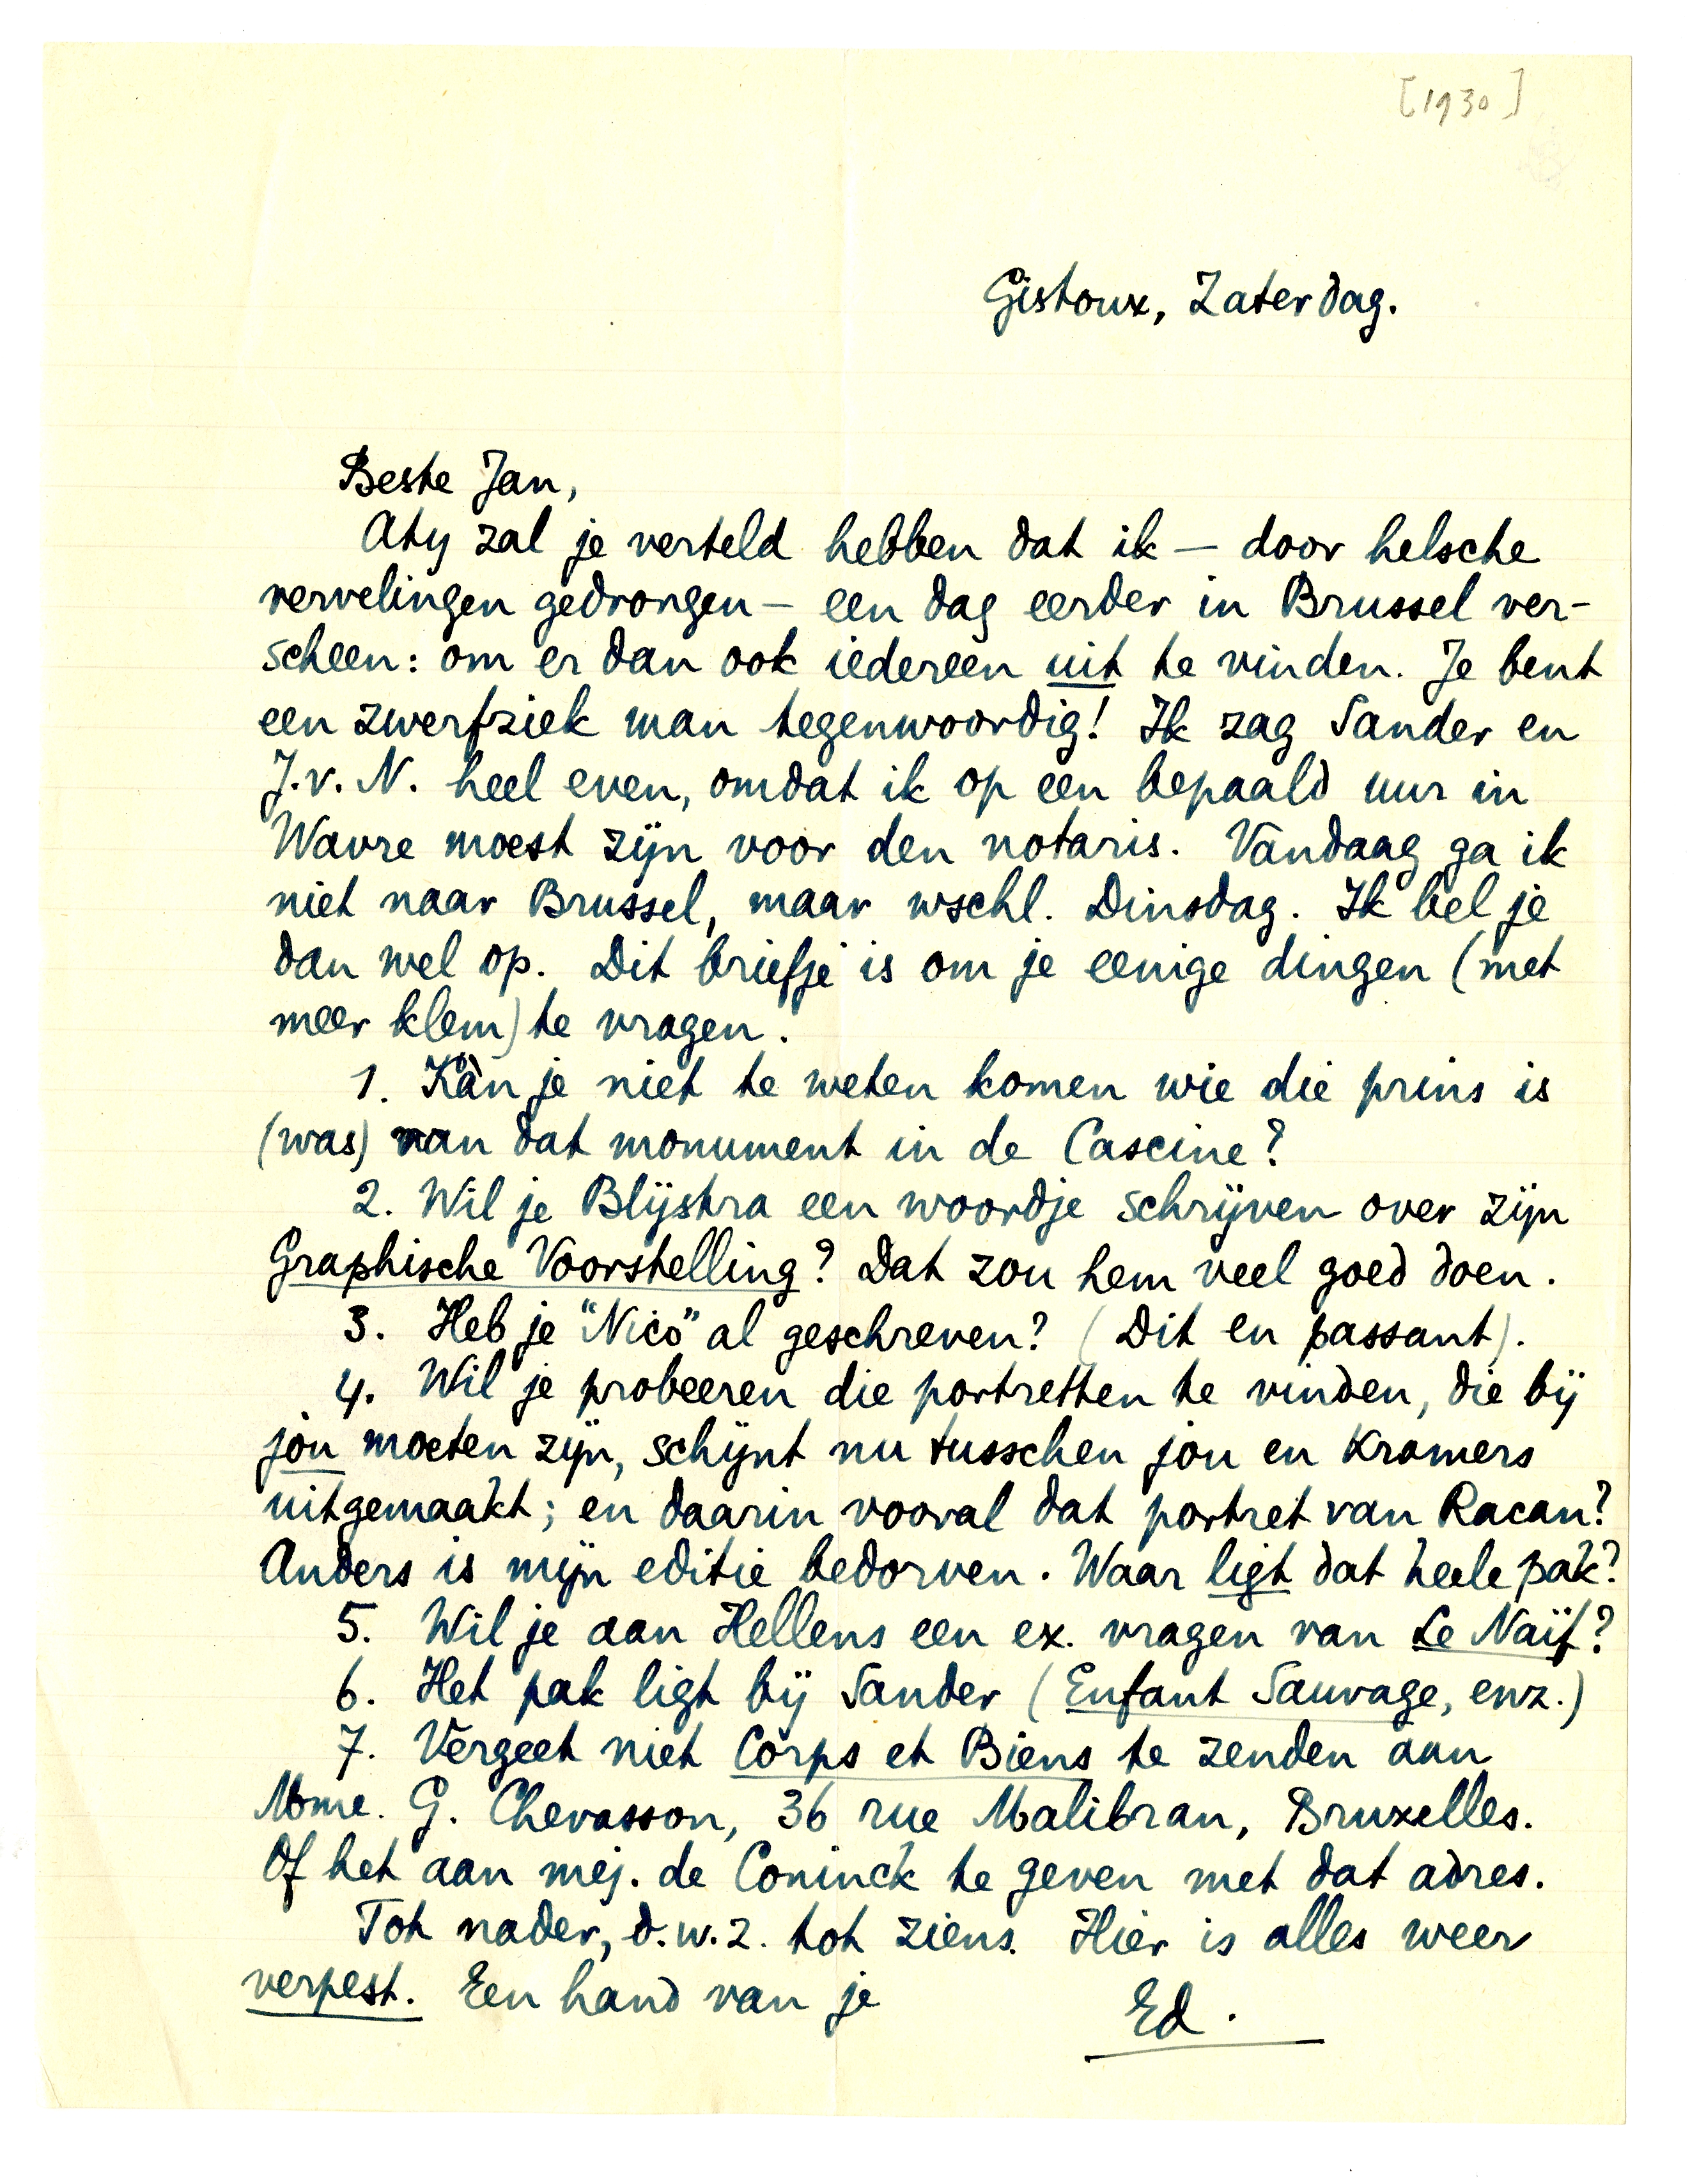 [1930]
Gistoux, Zaterdag.
Beste Jan,
Aty zal je verteld hebben dat ik — door helsche
vervelingen gedrongen — een dag eerder in Brussel ver-
scheen: om er dan ook iedereen uit te vinden. Je bent
een zwerfziek man tegenwoordig! Ik zag Sander en
J.v.N. heel even, omdat ik op een bepaald uur in
Wavre moest zijn voor den notaris. Vandaag ga ik
niet naar Brussel, maar wschl. Dinsdag. Ik bel je
dan wel op. Dit briefje is om je eenige dingen (met
meer klem) te vragen.
1. Kàn je niet te weten komen wie die prins is
(was) van dat monument in de Cascine?
2. Wil je Blijstra een woordje schrijven over zijn
Graphische Voorstelling? Dat zou hem veel goed doen.
3. Heb je "Nico" al geschreven? (Dit en passant).
4. Wil je probeeren die portretten te vinden, die bij
jou moeten zijn, schijnt nu tusschen jou en Kramers
uitgemaakt; en daarin vooral dat portret van Racan?
Anders is mijn editie bedorven. Waar ligt dat heele pak?
5. Wil je aan Hellens een ex. vragen van Le Naïf?
6. Het pak ligt bij Sander (Enfant Sauvage, enz.)
7. Vergeet niet Corps et Biens te zenden aan
Mme. G. Chevasson, 36 rue Malibran, Bruxelles.
Of het aan mej. de Coninck te geven met dat adres.
Tot nader, d.w.z. tot ziens. Hier is alles weer
verpest. Een hand van je
Ed.